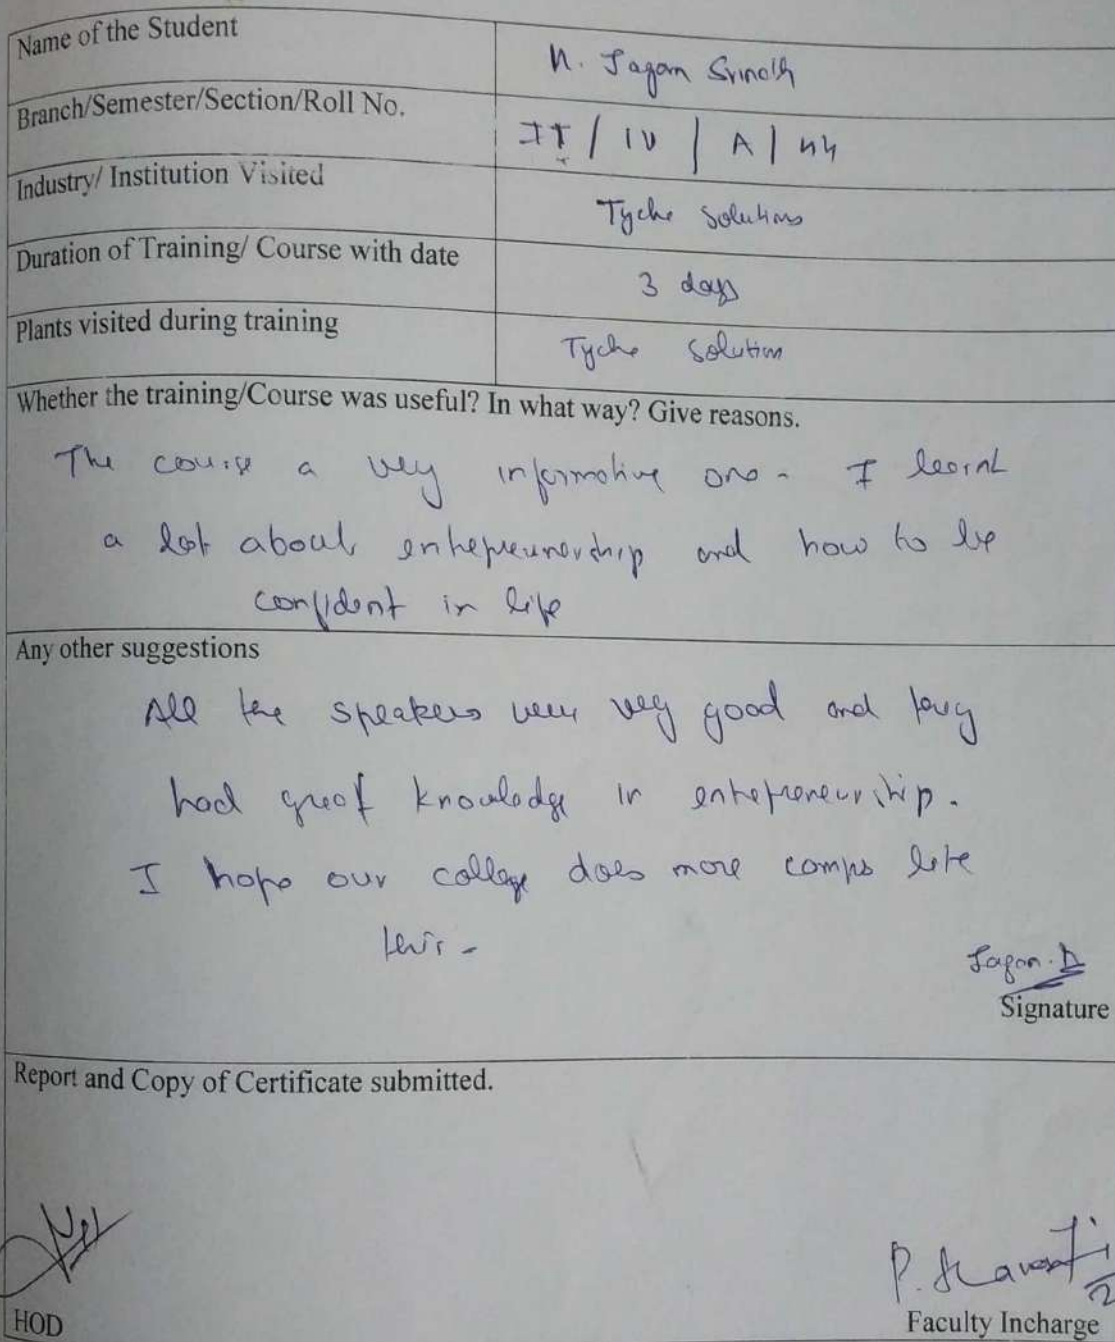 Name of the Student
N. Jagan Srinath
Branch/Semester/Section/Roll No.
IT / IV / A / 44
Industry/ Institution Visited
Tyche Solutions
Duration of Training/ Course with date
3 days
Plants visited during training
Tyche Solution
Whether the training/Course was useful? In what way? Give reasons.
The course a very informative one. I learnt
a lot about entrepreunership and how to be
confident in life
Any other suggestions
All the speakers were very good and they
had great knowledge in entrepreneurship.
I hope our college does more camps like
this.
Jagan.
Signature
Report and Copy of Certificate submitted.
P.
HOD
Faculty Incharge